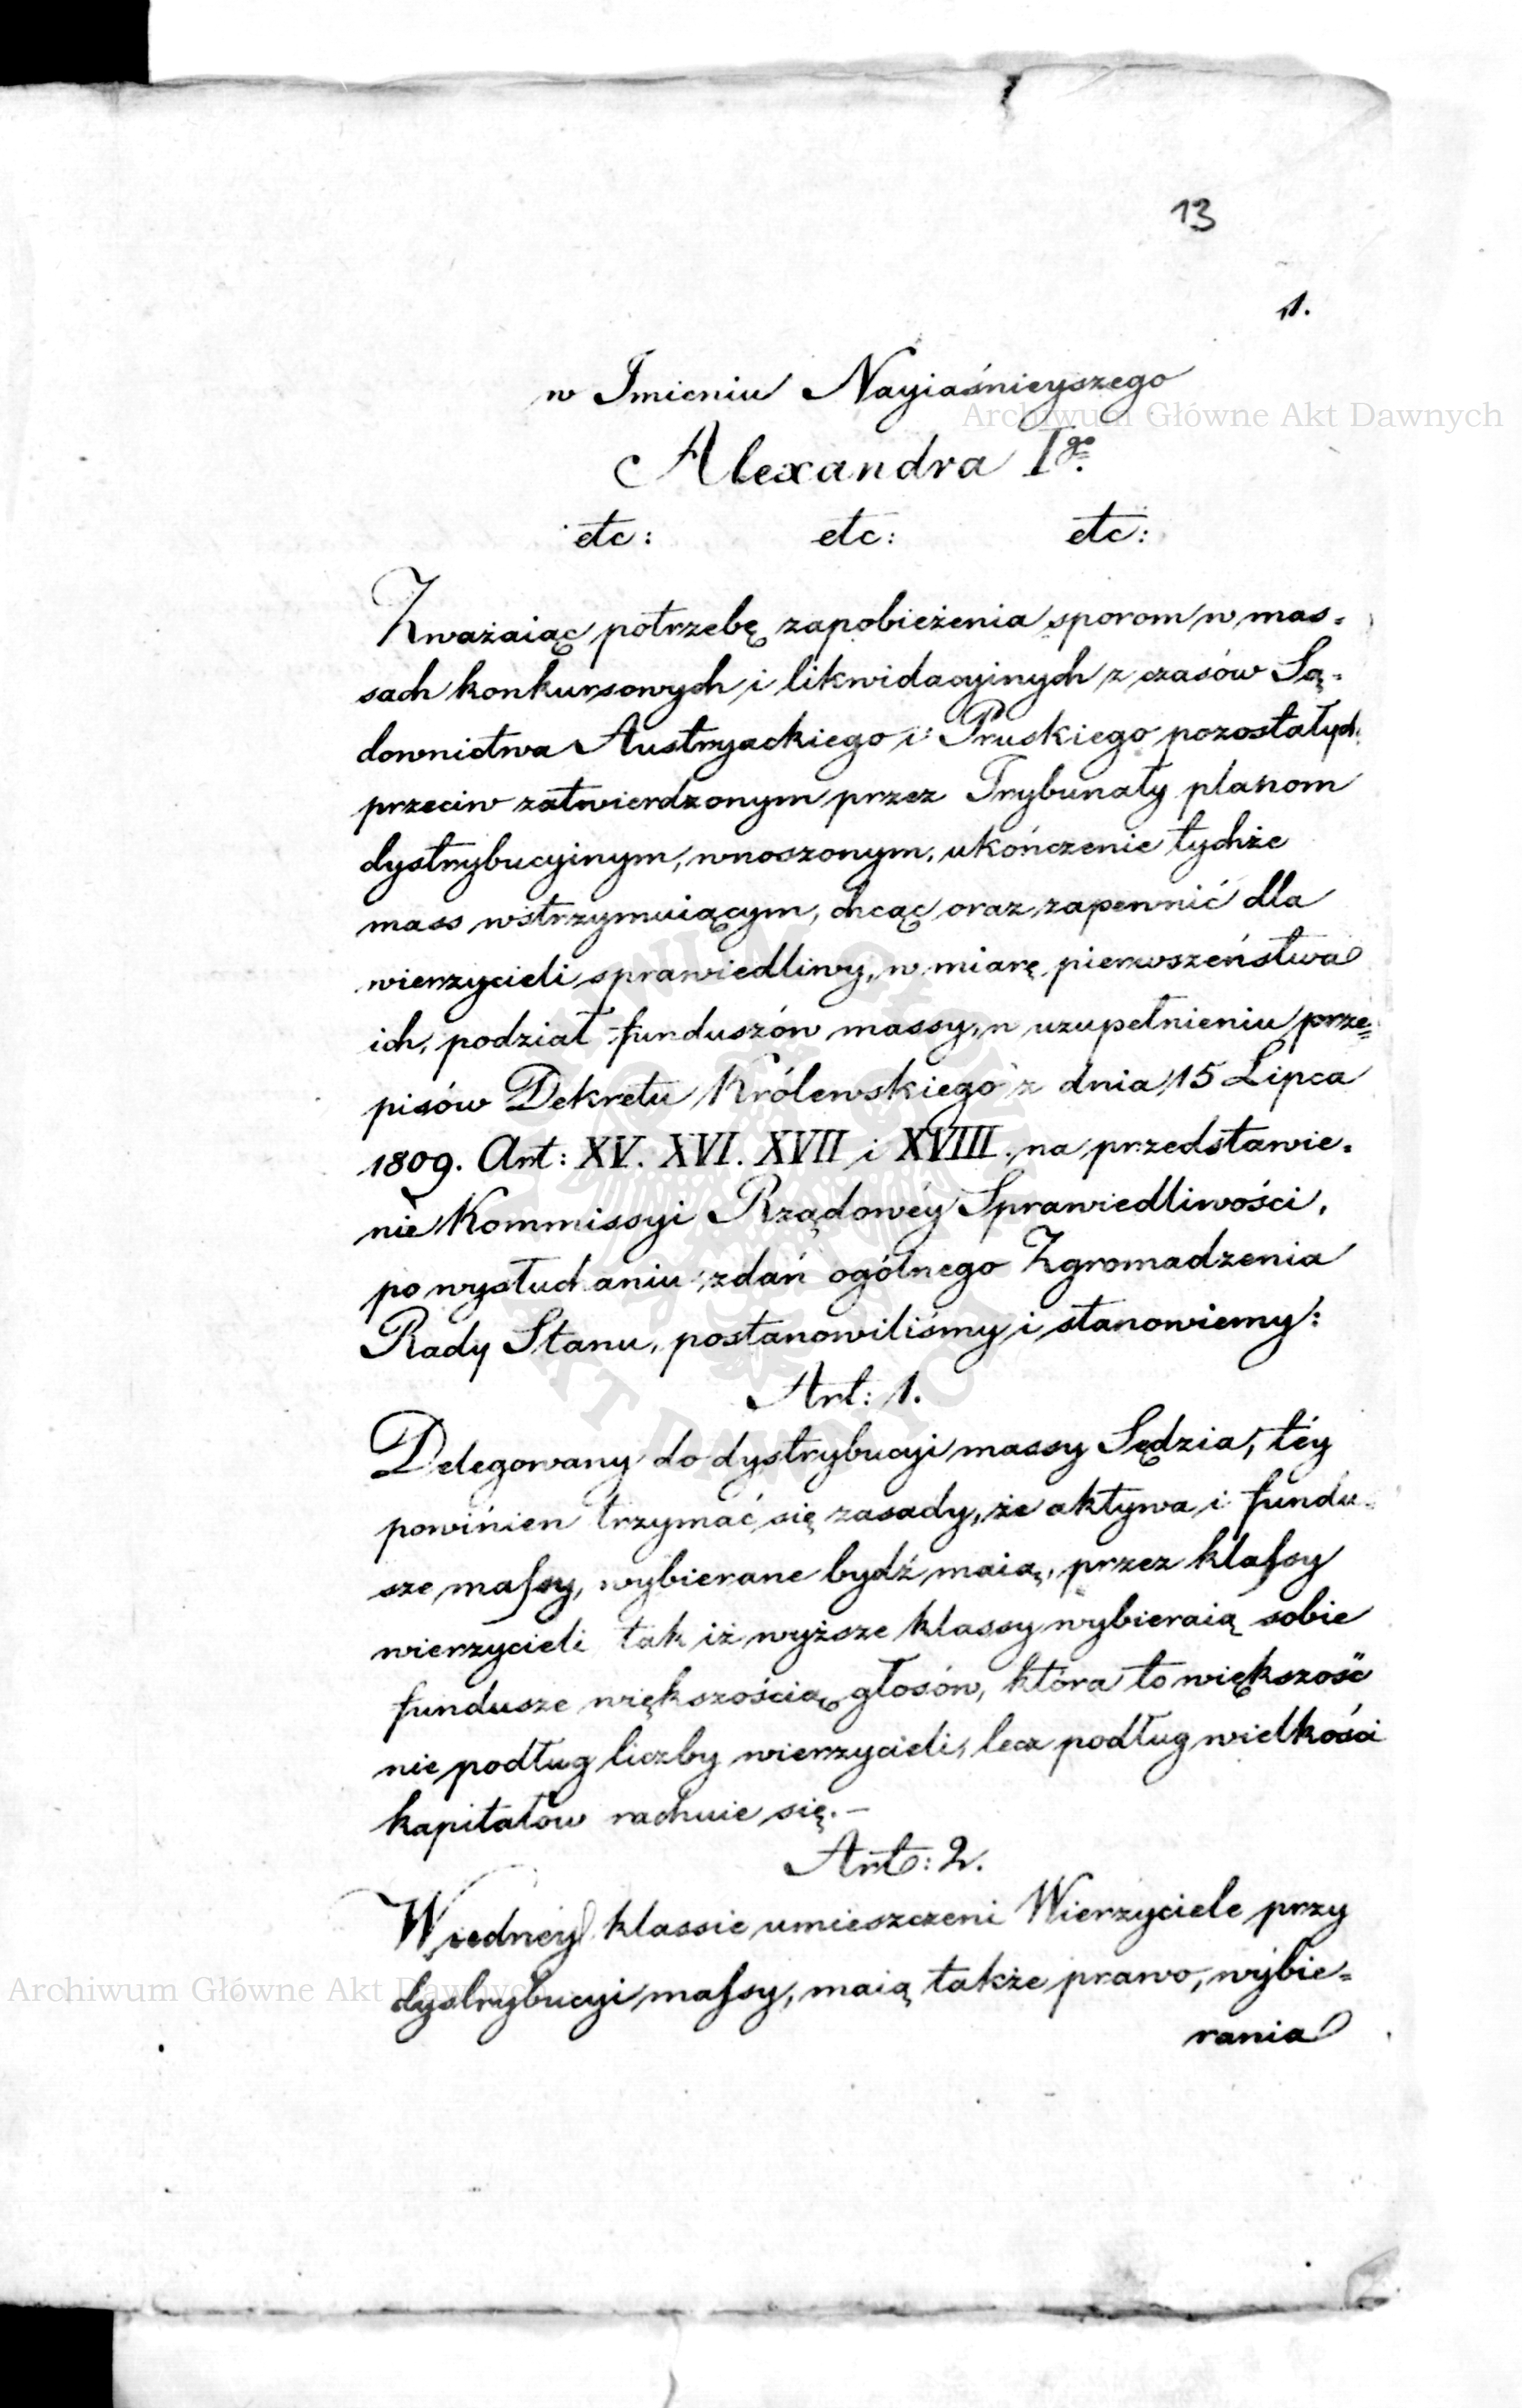 13
1.
w Imieniu Nayiaśnieyszego
Archiwum Główne Akt Dawnych
Alexandra Igo.
etc: etc: etc:
Zważaiąc potrzebę zapobieżenia sporom w mas=
sach konkursowych i likwidacyinych z czasów Są=
downictwa Austryackiego i Pruskiego pozostałych
przeciw zatwierdzonym przez Trybunały planom
dystrybucyinym, wnoszonym, ukończenie tychże
mass wstrzymuiącym, chcąc oraz zapewnić dla
wierzycieli sprawiedliwy, w miarę pierwszeństwa
ich, podział funduszów massy, w uzupełnieniu prze=
pisów Dekretu Królewskiego z dnia 15 Lipca
1809. Art: XV. XVI. XVII i XVIII. na przedstawie=
nie Kommissyi Rządowéy Sprawiedliwości,
po wysłuchaniu zdań ogólnego Zgromadzenia
Rady Stanu, postanowiliśmy i stanowiemy:
Art: 1.
Delegowany do dystrybucyi massy Sędzia, téy
powinien trzymać się zasady, że aktywa i fundu=
sze massy, wybierane bydź maią, przez klassy
wierzycieli tak iż wyższe klassy wybieraią sobie
fundusze większością głosów, która to większość
nie podług liczby wierzycieli, lecz podług wielkości
kapitałow rachuie się.—
Art: 2.
W iedney klassie umieszczeni Wierzyciele przy
Archiwum Główne Akt Dawnych
dystrybucyi massy, maią także prawo, wybie=
rania